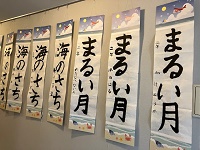 まるい月
まるい月
まるい月
海のさち
海のさち
海のさち
海のさち